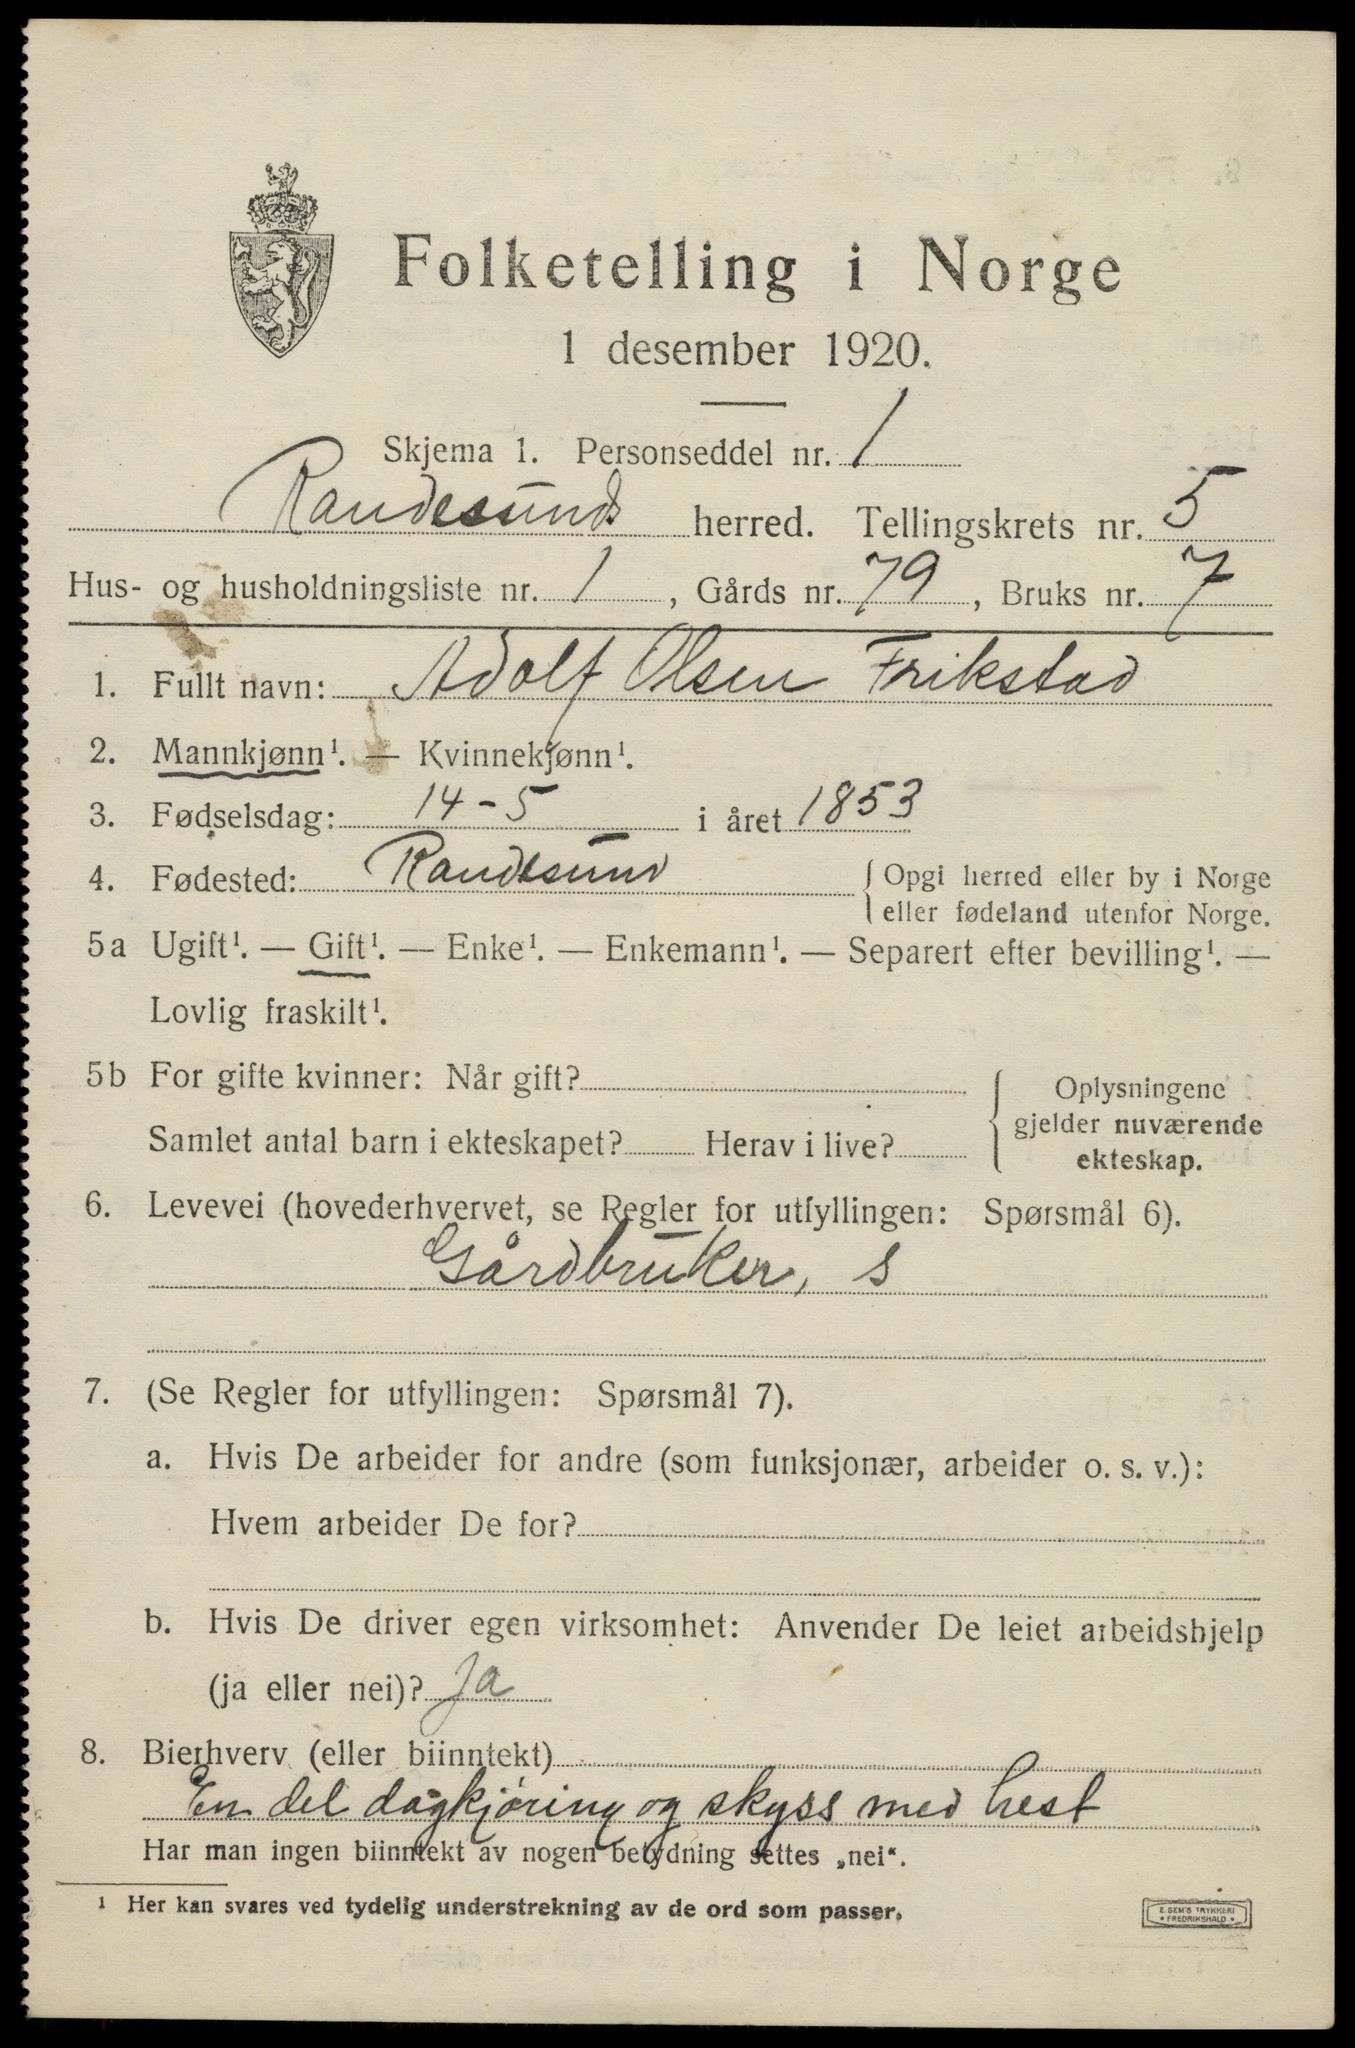 Folketelling i Norge
1 desember 1920.
Skjema 1. Personseddel nr. 1
Randesunds herred. Tellingskrets nr. 5
Hus- og husholdningsliste nr. 1, Gårds nr. 79, Bruks nr. 7
1. Fullt navn: Adolf Olsen Frikstad
2. Mannkjønn¹. — Kvinnekjønn¹.
3. Fødselsdag: 14-5 i året 1853
4. Fødested: Randesund { Opgi herred eller by i Norge
eller fødeland utenfor Norge.
5a Ugift¹. — Gift¹. — Enke¹. — Enkemann¹. — Separert efter bevilling¹. —
Lovlig fraskilt¹.
5b For gifte kvinner: Når gift?
Samlet antal barn i ekteskapet? Herav i live?
Oplysningene
gjelder nuværende
ekteskap.
6. Levevei (hovederhvervet, se Regler for utfyllingen: Spørsmål 6).
Gårdbruker, s
7. (Se Regler for utfyllingen: Spørsmål 7).
a. Hvis De arbeider for andre (som funksjonær, arbeider o. s. v.):
Hvem arbeider De for?
b. Hvis De driver egen virksomhet: Anvender De leiet arbeidshjelp
(ja eller nei)? Ja
8. Bierhverv (eller biinntekt)
En del dagkjøring og skyss med hest
Har man ingen biinntekt av nogen betydning settes „nei“.
¹ Her kan svares ved tydelig understrekning av de ord som passer.
E. SEM'S TRYKKERI
FREDRIKSHALD